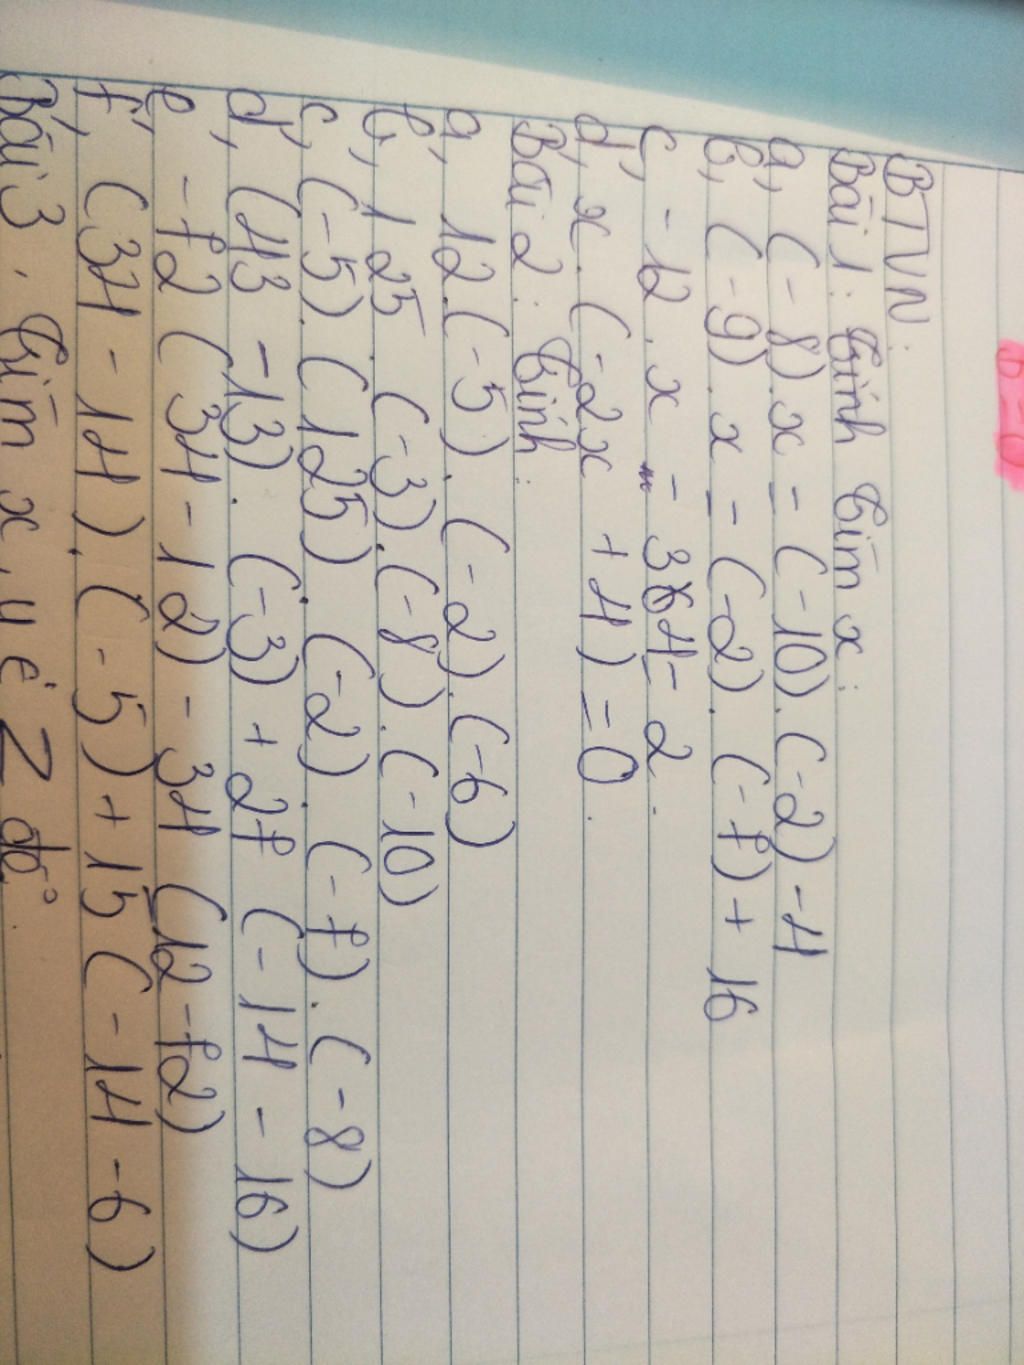 BTVN:
Bài 1: tính tìm x:
a, (-8).x = (-10).(-2)-4
b, (-9).x = (-2).(-7)+16
c, -12.x = 364-2.
d, x.(-2x+4)=0.
Bài 2: tính:
a, 12.(-5).(-2).(-6)
b, 125.(-3).(-8).(-10)
c, (-5).(125).(-2).(-7).(-8)
d, (43-13).(-3)+27(-14-16)
e, -72(34-12)-34(12-72)
f, (34-14).(-5)+15(-14-6)
Bài 3. tìm x, y ∈ Z để: